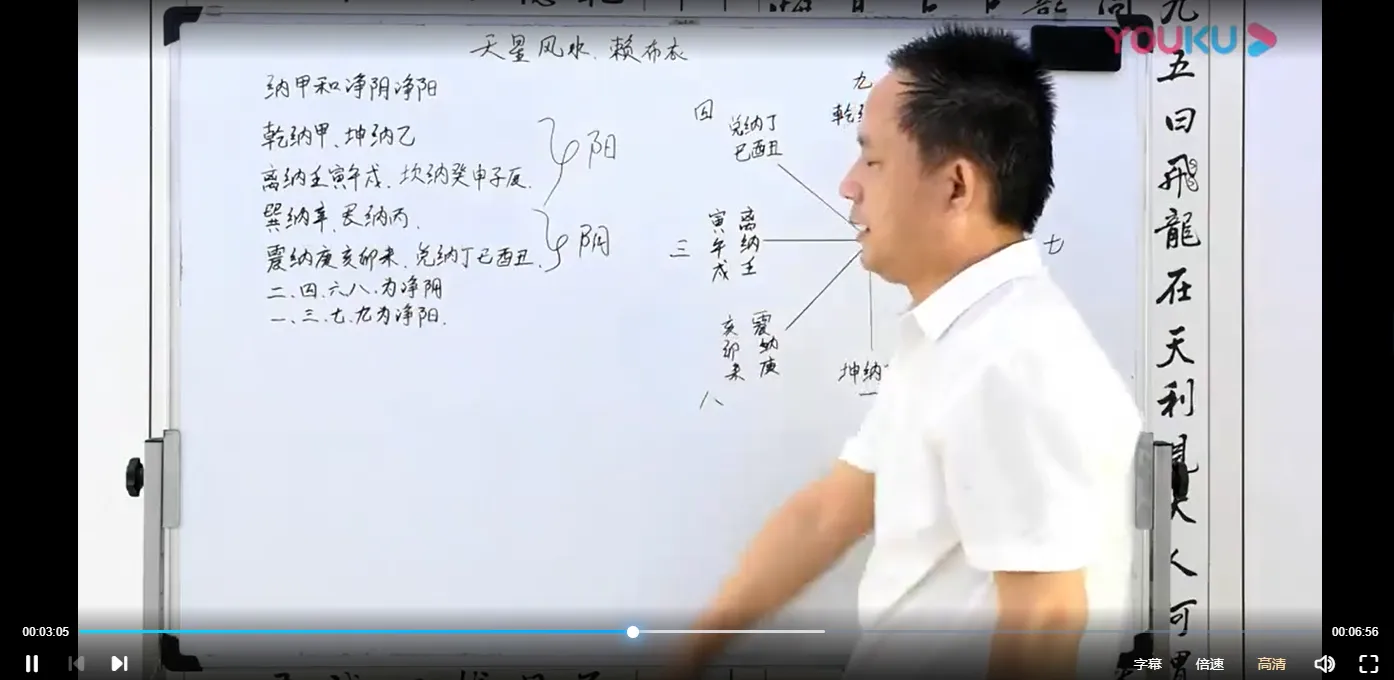 天星风水、赖布衣
纳甲和净阴净阳
乾纳甲、坤纳乙
离纳壬寅午戌、坎纳癸申子辰、
阳
巽纳辛、艮纳丙、
震纳庚亥卯未、兑纳丁巳酉丑、
阴
二、四、六、八、为净阴
一、三、七、九为净阳、
四
兑纳丁
巳酉丑
九
乾纳
三
寅午戌
离纳壬
七
亥卯未
震纳庚
八
坤纳
一
九五曰飛龍在天利見大人何謂
YOUKU
00:03:05
00:06:56
字幕
倍速
高清